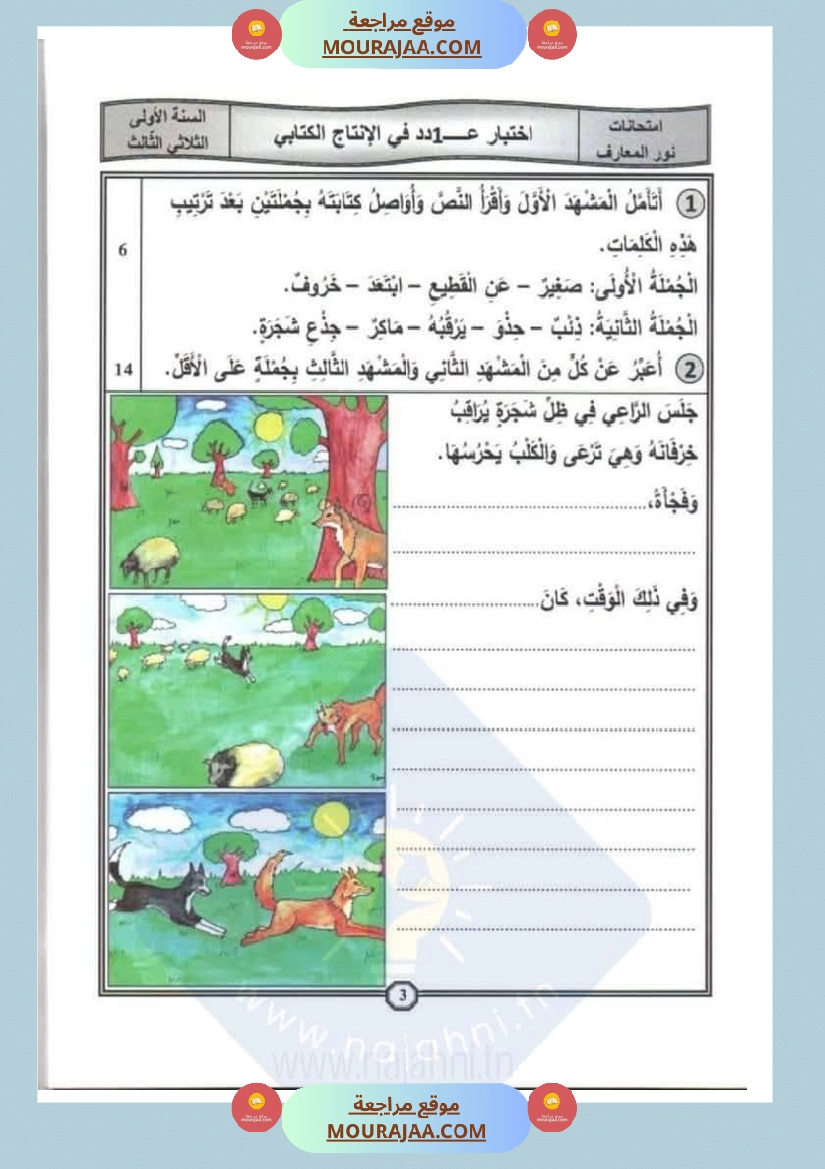 موقع مراجعة
MOURAJAA.COM
السنة الأولى
الثلاثي الثالث
اختبار عــ1ــدد في الإنتاج الكتابي
امتحانات
نور المعارف
1 أَتَأَمَّلُ الْمَشْهَدَ الْأَوَّلَ وَأَقْرَأُ النَّصَّ وَأُوَاصِلُ كِتَابَتَهُ بِجُمْلَتَيْنِ بَعْدَ تَرْتِيبِ
هَذِهِ الْكَلِمَاتِ.
6
الْجُمْلَةُ الْأُولَى: صَغِيرٌ – عَنِ الْقَطِيعِ – ابْتَعَدَ – خَرُوفٌ.
الْجُمْلَةُ الثَّانِيَةُ: ذِئْبٌ – حِذْوَ – يَرْقُبُهُ – مَاكِرٌ – جِذْعِ شَجَرَةٍ.
2 أُعَبِّرُ عَنْ كُلٍّ مِنَ الْمَشْهَدِ الثَّانِي وَالْمَشْهَدِ الثَّالِثِ بِجُمْلَةٍ عَلَى الْأَقَلِّ.
14
جَلَسَ الرَّاعِي فِي ظِلِّ شَجَرَةٍ يُرَاقِبُ
خِرْفَانَهُ وَهِيَ تَرْعَى وَالْكَلْبُ يَحْرُسُهَا.
وَفَجْأَةً،
وَفِي ذَلِكَ الْوَقْتِ، كَانَ
3
www.najahni.tn
www.najahni.tn
موقع مراجعة
MOURAJAA.COM